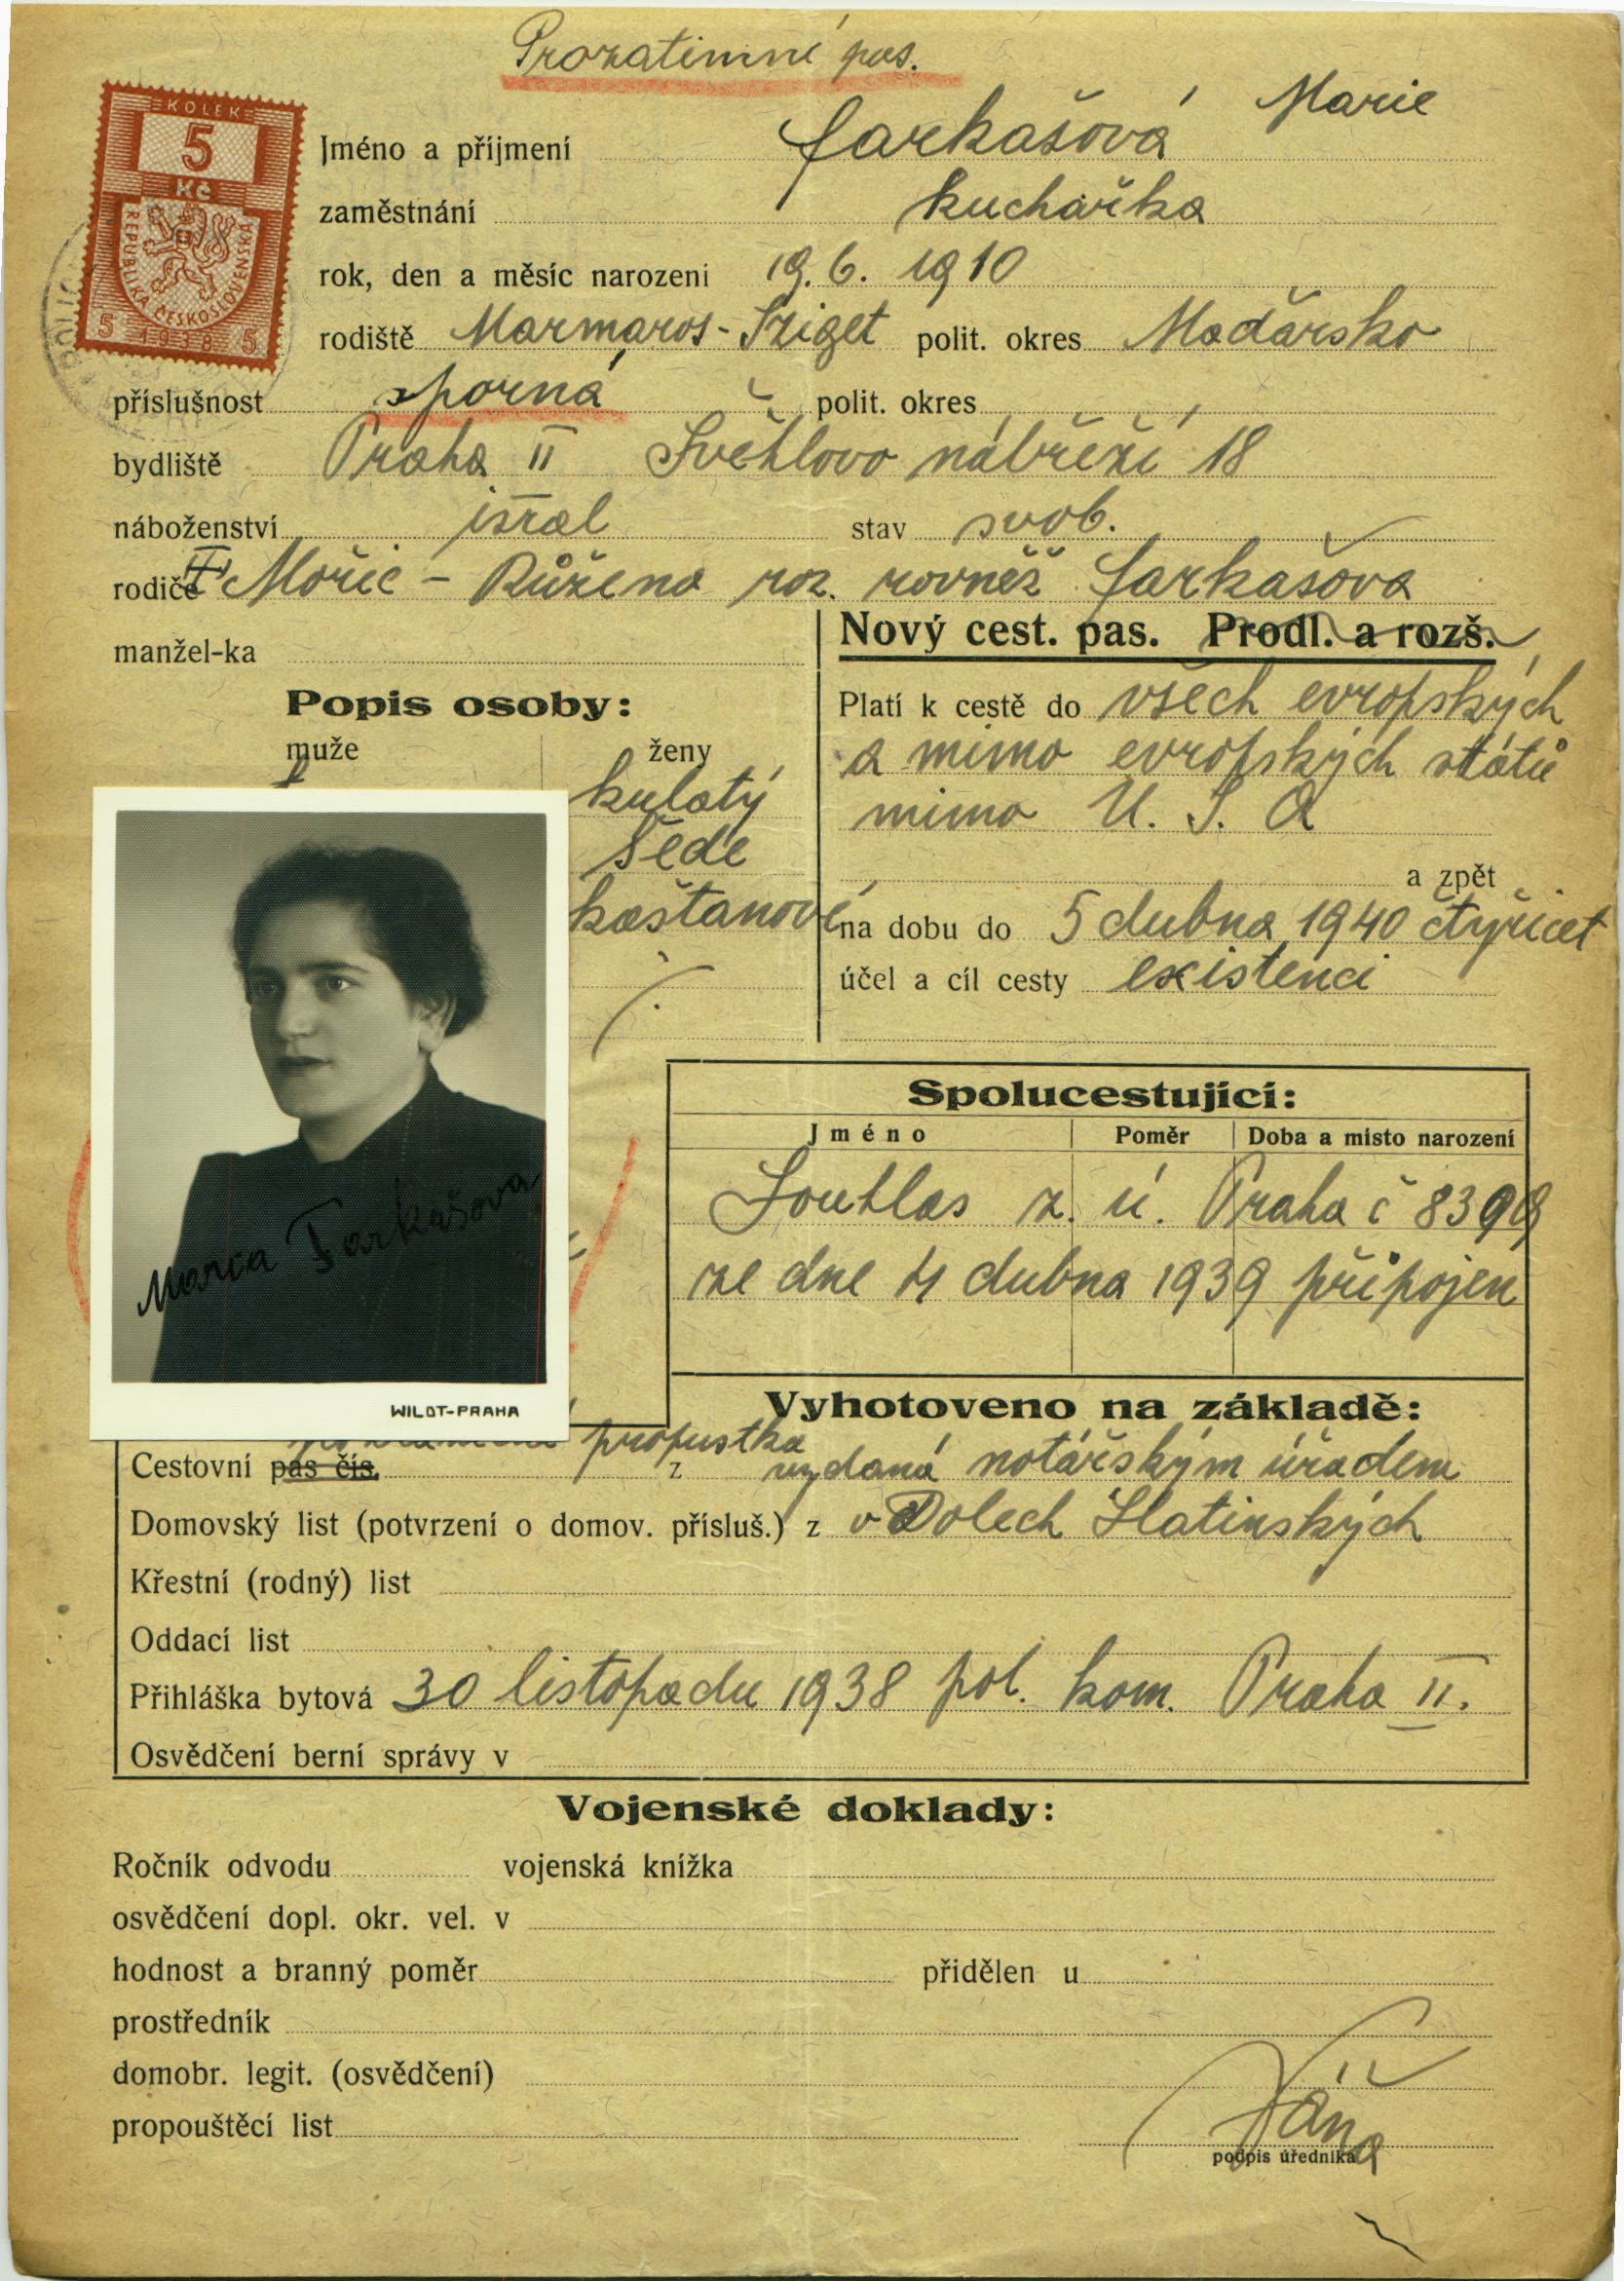 Prozatimní pas.
KOLEK
5
Kč
REPUBLIKA ČESKOSLOVENSKÁ
5 1938 5
Jméno a příjmení Farkašová Marie
zaměstnání kuchařka
rok, den a měsíc narození 19. 6. 1910
rodiště Marmaros-Sziget polit. okres Maďarsko
příslušnost sporná polit. okres
bydliště Praha II Světlovo nábřeží 18
náboženství israel stav svob.
rodiče Mořic - Růžena roz. rovněž Farkašová
manžel-ka
Nový cest. pas. Prodl. a rozš.
Popis osoby:
muže ženy
kulatý
šedé
kaštanové
Platí k cestě do všech evropských
a mimo evropských států
mimo U. S. A
a zpět
na dobu do 5 dubna 1940 čtyřicet
účel a cíl cesty existenci
Maria Farkašová
WILDT-PRAHA
Spolucestující:
Jméno Poměr Doba a místo narození
Souhlas z. ú. Praha č 8399
ze dne 4 dubna 1939 připojen
Vyhotoveno na základě:
propustka
Cestovní pas čís. z vydaná notářským úřadem
Domovský list (potvrzení o domov. přísluš.) z v Dolech Slatinských
Křestní (rodný) list
Oddací list
Přihláška bytová 30 listopadu 1938 pol. kom. Praha II.
Osvědčení berní správy v
Vojenské doklady:
Ročník odvodu vojenská knížka
osvědčení dopl. okr. vel. v
hodnost a branný poměr přidělen u
prostředník
domobr. legit. (osvědčení)
propouštěcí list
podpis úředníka